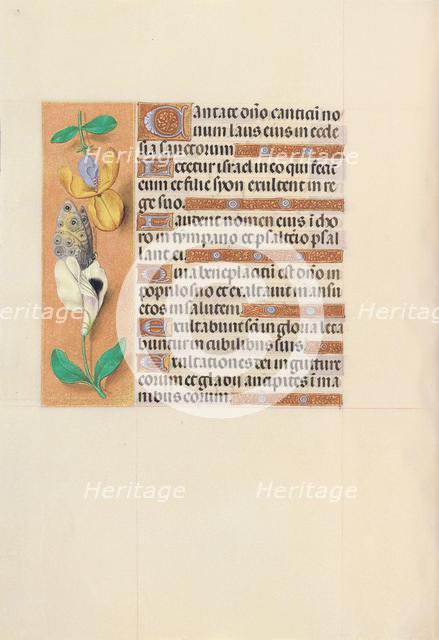 Cantate dño canticũ no
uum laus eius in eccle
sia sanctorum
Letetur israel in eo qui fecit
eum et filie syon exultent in re
ge suo.
Laudent nomen eius ĩ cho
ro in tympano et psalterio psal
lant ei.
Quia beneplacitũ est dño in
populo suo et exaltauit mansu
etos in salutem.
Exultabunt sc̃i in gloria leta
buntur in cubilibus suis.
Exaltationes dei in gutture
eorum et gladij ancipites ĩ ma
nibus eorum.
Heritage
Heritage
Heritage
Heritage
Heritage
Heritage